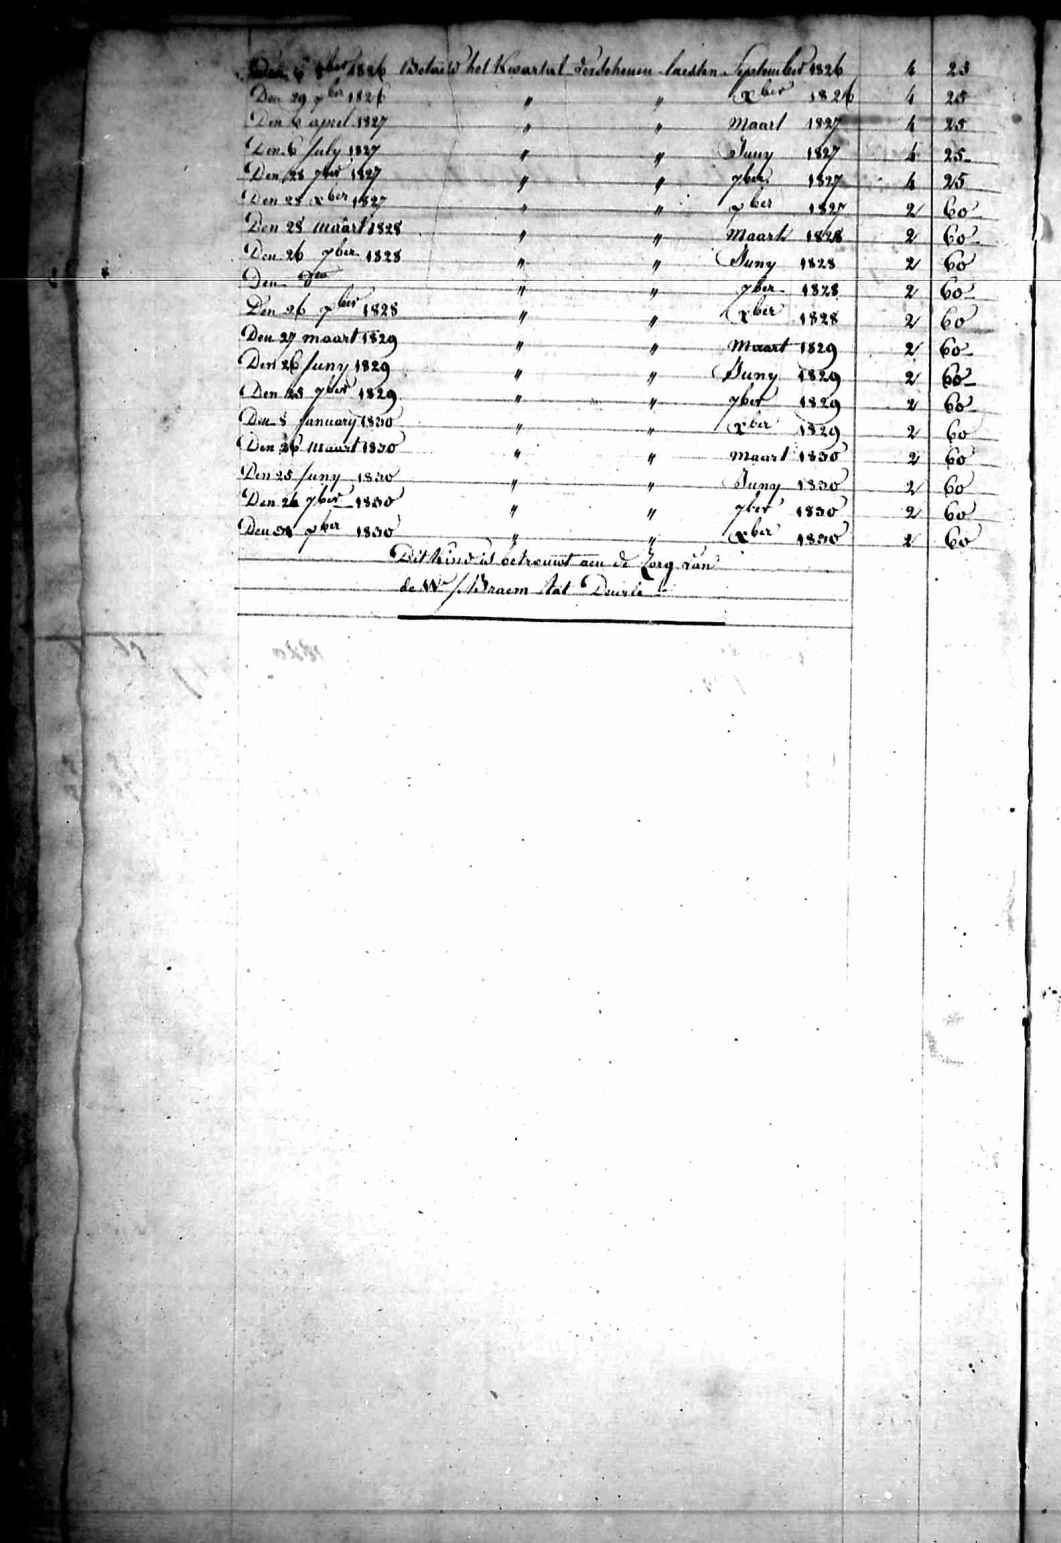 Den 6 8ber 1826 Betaeld het Kwartael verschenen laesten September 1826 4 25
Den 29 9ber 1826 " " Xber 1826 4 25
Den 6 april 1827 " " Maart 1827 4 25
Den 6 July 1827 " " Juny 1827 4 25
Den 28 7ber 1827 " " 7ber 1827 4 25
Den 28 xber 1827 " " xber 1827 2 60
Den 28 maart 1828 " " Maart 1828 2 60
Den 26 7ber 1828 " " Juny 1828 2 60
Den do " " 7ber 1828 2 60
Den 26 xber 1828 " " Xber 1828 2 60
Den 27 maart 1829 " " Maart 1829 2 60
Den 26 Juny 1829 " " Juny 1829 2 60
Den 28 7ber 1829 " " 7ber 1829 2 60
Den 8 January 1830 " " Xber 1829 2 60
Den 26 Maart 1830 " " Maart 1830 2 60
Den 25 Juny 1830 " " Juny 1830 2 60
Den 24 7ber 1830 " " 7ber 1830 2 60
Den 31 xber 1830 " " Xber 1830 2 60
Dit Kind is betrouwt aen de Zorg van
de We J. Braem tot Deurle